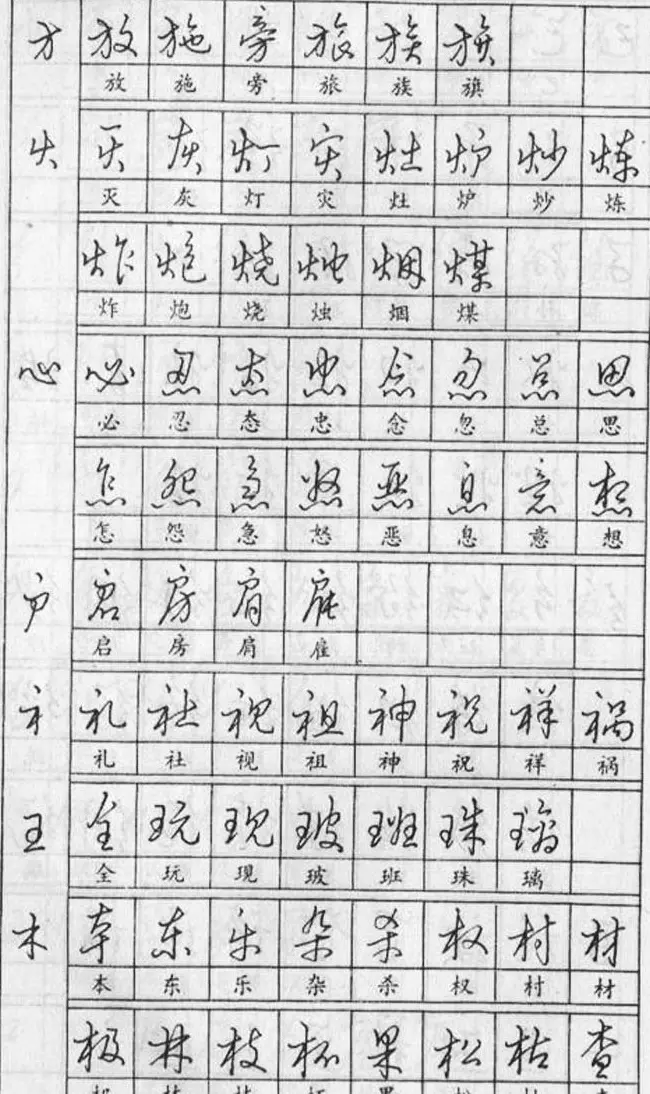 方 放 施 旁 旅 族 旗
放 施 旁 旅 族 旗
火 灭 灰 灯 灾 灶 炉 炒 炼
灭 灰 灯 灾 灶 炉 炒 炼
炸 炮 烧 烛 烟 煤
炸 炮 烧 烛 烟 煤
心 必 忍 态 忠 念 忽 总 思
必 忍 态 忠 念 忽 总 思
怎 怨 急 怒 恶 息 意 想
怎 怨 急 怒 恶 息 意 想
户 启 房 肩 雇
启 房 肩 雇
礻 礼 社 视 祖 神 祝 祥 祸
礼 社 视 祖 神 祝 祥 祸
王 全 玩 现 玻 班 珠 璃
全 玩 现 玻 班 珠 璃
木 本 东 乐 杂 杀 权 村 材
本 东 乐 杂 杀 权 村 材
板 林 枝 杯 果 松 枯 查